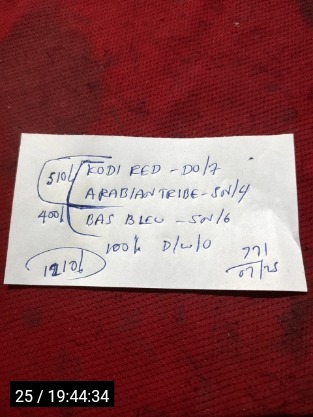 510/- KODI RED - DO/7
ARABIAN TRIBE - SN/4
400/- BAS BLEU - SN/6
100/- D/L/O
1210/-
771
07/25
25 / 19:44:34